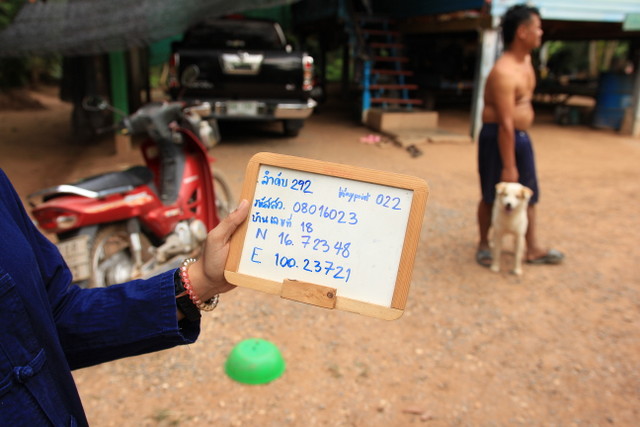 ลำดับ 292 Waypoint 022
รหัสสว. 08016023
บ้านเลขที่ 18
N 16.72348
E 100.23721